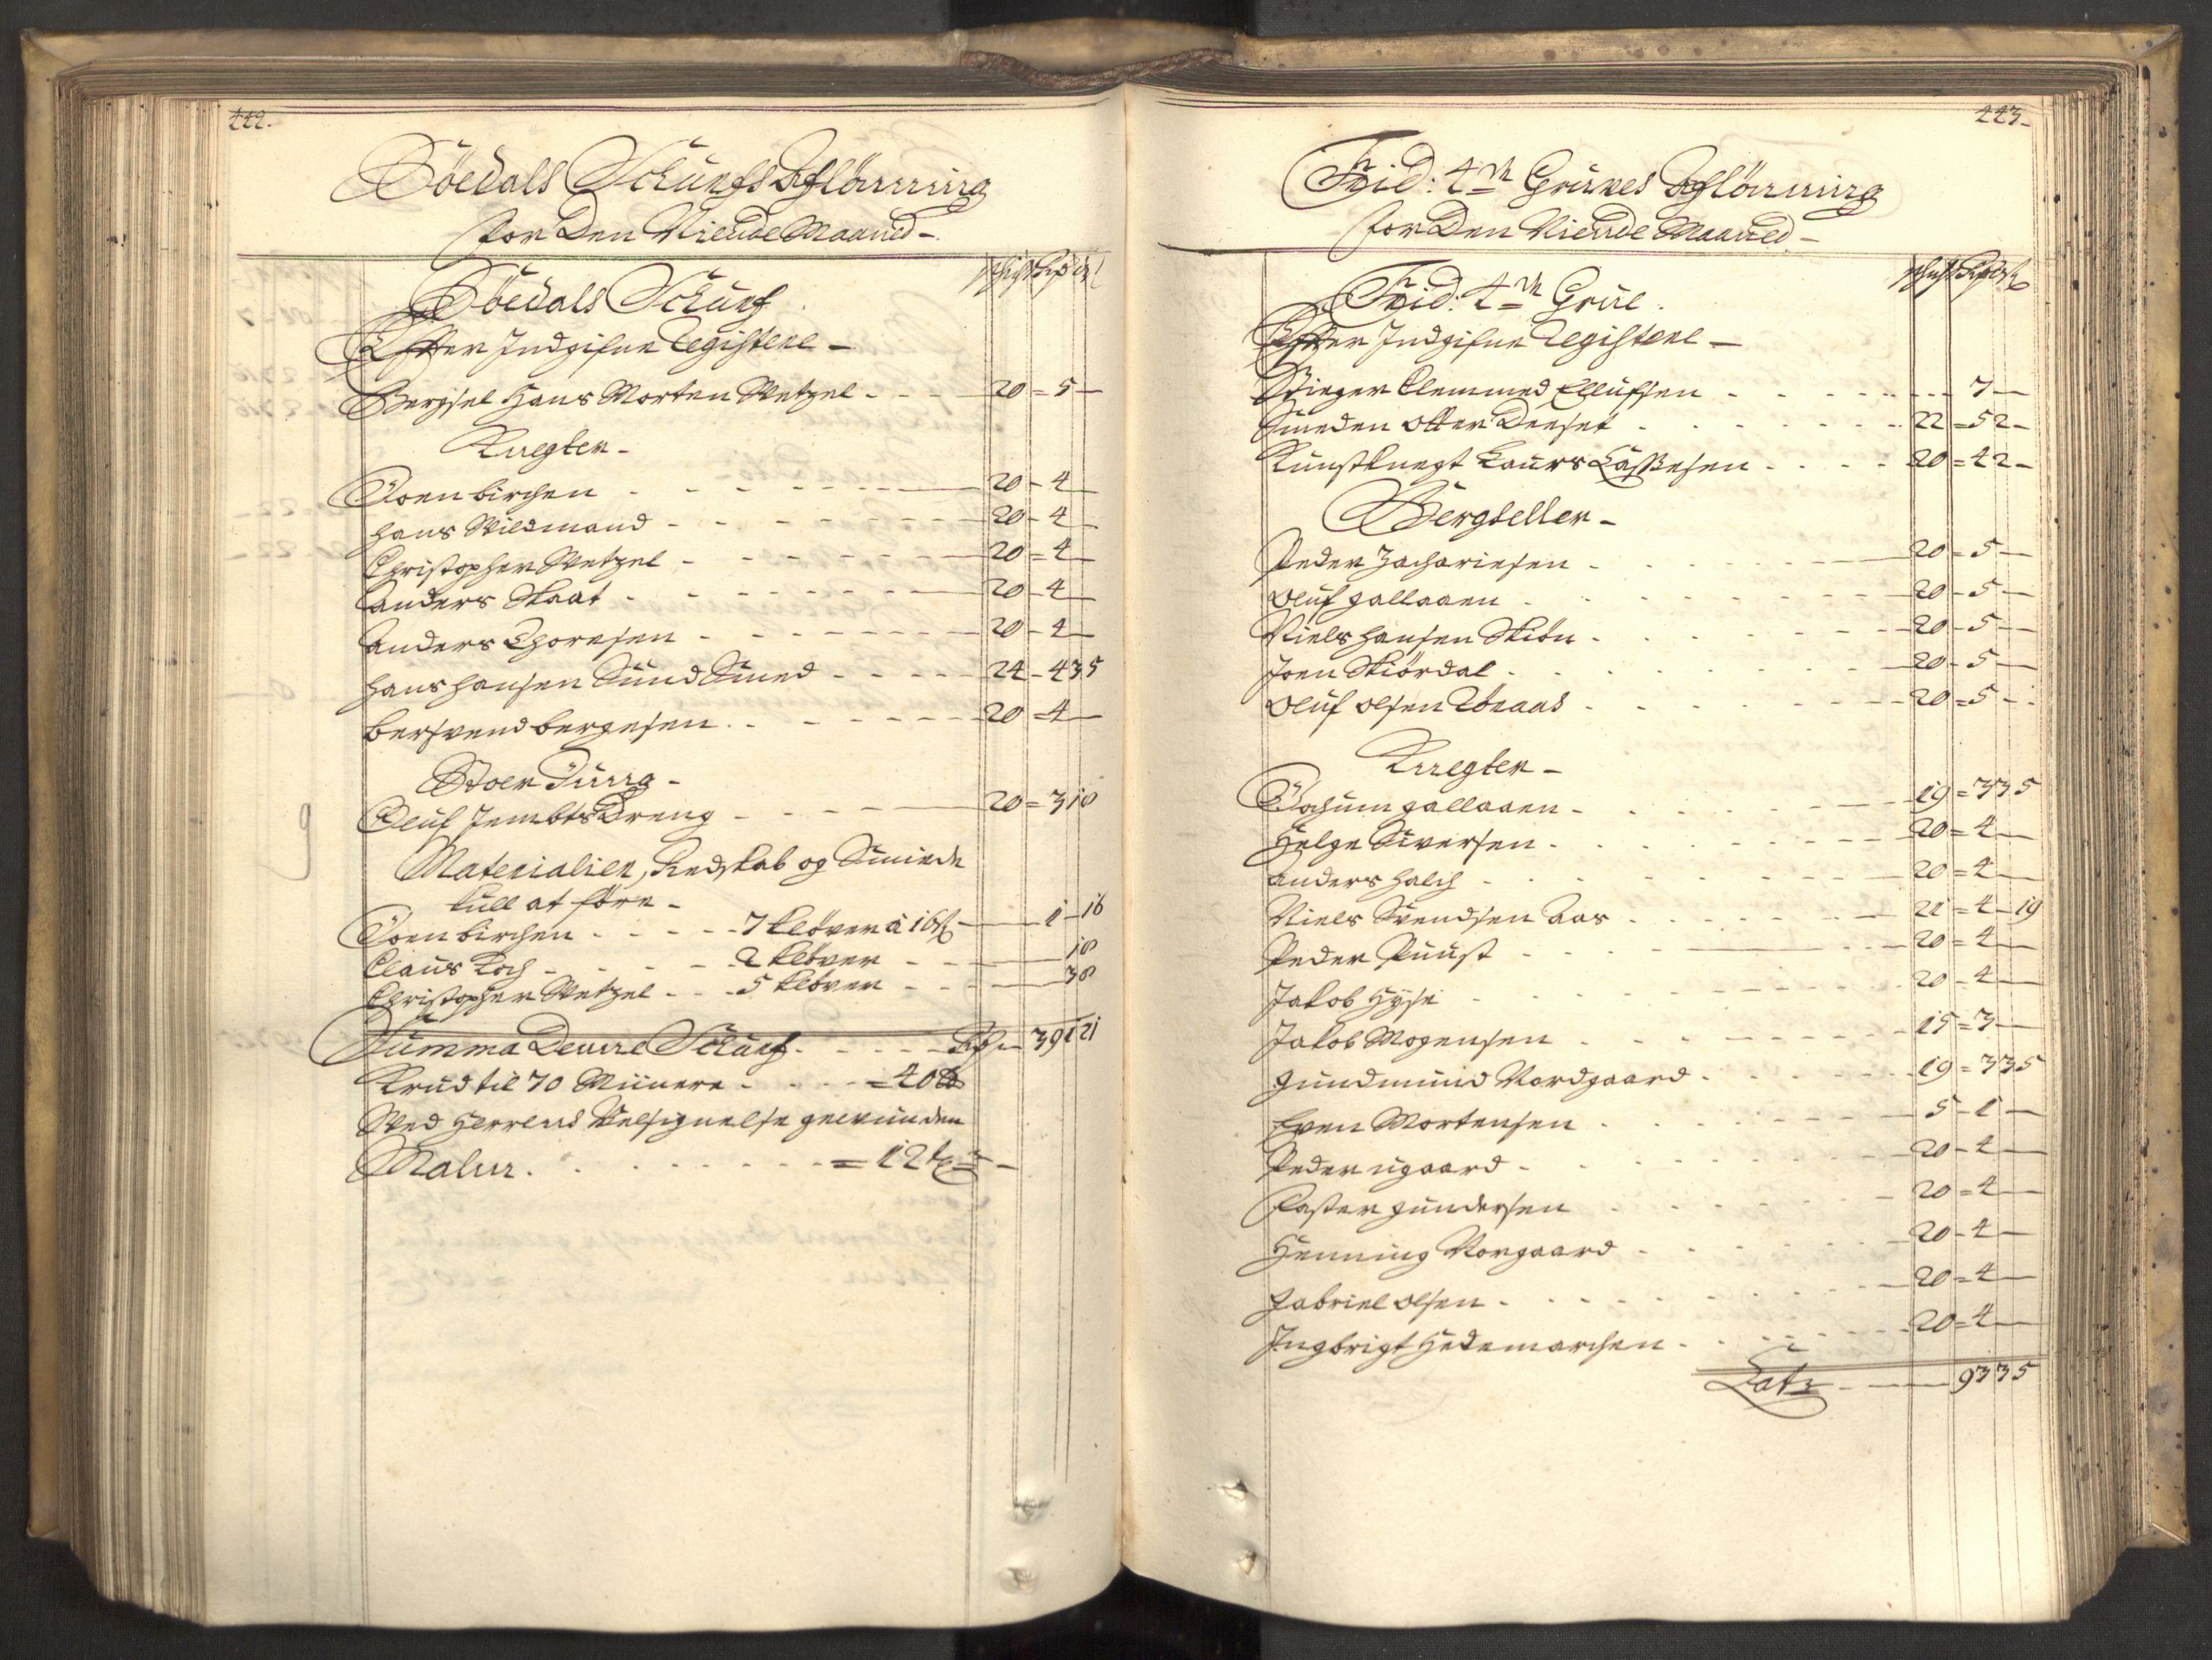 442.
Söedals Schürfs Afflönning
for Den Niende Maaned -
Söedals Schürf
Effter Indgifne Registere -
Bergsel Hans Morten Wetzel - - - 20 = 5 -
Knegter -
Joen birchen - - - 20 - 4 -
Hans Wildmand - - - 20 - 4 -
Christopher Wetzel - - - 20 = 4 -
Anders Skaat - - - 20 - 4 -
Anders Thoresen - - - 20 - 4 -
Hans Hansen Sund Smed - - - 24 - 4 3 5
Bersvend bergesen - - - 20 = 4 -
Stoer Jung -
Oluf Jembts Dreng - - - 20 = 3 1 8
Materialier, Redskab og Smiede
kull at före -
Joen birchen - - - 7 klöver à 16 ß - 1 - 16
Claus Koch - - - 2 klöver - - 18
Christopher Wetzel - - - 5 klöver - - 38
Summa Denne Schürf - - - Rd - 39 1 21
Krud til 70 Miinere - - - = 40 ℔
Med Herrens Velsignelse gewunden
Malm - - - = 12 t = -
443.
Frid: 4de Gruves Afflönning
for Den Niende Maaned -
Frid: 4de Grue.
Effter Indgifne Registere -
Stieger Clemmed Elluffsen - - - 7 -
Smeden Otter Deeset - - - 22 = 5 2 -
Kunstknegt Laurs Lassesen - - - 20 = 4 2 -
Bergseller -
Peder Zachariesen - - - 20 = 5 -
Oluf gallaaen - - - 20 - 5 -
Niels Hansen Skiön - - - 20 - 5 -
Joen Stiördal - - - 20 - 5 -
Oluf Olsen Aaraas - - - 20 = 5 -
Knegter -
Jochum gallaaen - - - 19 = 3 3 5
Helge Siversen - - - 20 = 4 -
Anders Falch - - - 20 = 4 -
Niels Svendsen Aas - - - 21 = 4 - 19
Peder Puust - - - 20 = 4 -
Jakob Hysi - - - 20 - 4 -
Jakob Mogensen - - - 15 = 3 -
Gundmund Nordgaard - - - 19 = 3 3 5
Even Mortensen - - - 5 - 1 -
Peder ugaard - - - 20 - 4 -
Paster gundersen - - - 20 = 4 -
Henning Norgaard - - - 20 - 4 -
Gabriel Olsen - - - 20 = 4 -
Ingbrigt Hedemarchen - - - 20 = 4 -
Lats - - 93 3 5